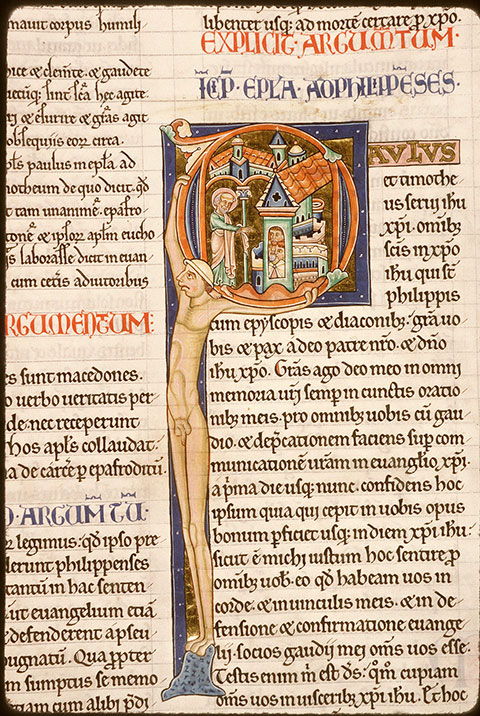 nauit corpus humili
hice & clem̅t̅e. & gaudete
Lectiq; sint. sc̅a hec agite
& esurire & gr̅as agit
obsequiis eor̅ circa.
paulus in epl̅a ad
motheum de quo dicit. q̅d
tam unanime̅. epafro
& ip̅or̅ apl̅m eucho
laborasse dicit in euan
cum cet̅is adiutoribus
RGUMENTUM:
es sunt macedones.
o verbo ueritatis per
de. nec receperunt
hos apl̅s collaudat.
a de carce̅ p̲ epafroditu̅.
ARGUM̅TU̅.
legimus. q̅d ipso pre
derunt philippenses
tantu̅ in hac senten
ut euangelium etia̅
defenderent a pseu
pugnatu̅. Qua p̲pter
m sumptus se memo
tiam cum alibi p̲di
libenter usq; ad morte̅ certare p̲ xp̅o.
EXPLICIT ARGUM̅TUM.
INCP̅ EPL̅A AD PHILIPPE̅SES.
PAULUS
et timothe
us serui ihu
xp̅i. omnib;
sc̅is in xp̅o
ihu qui st̅
philippis
cum ep̅yscopis & diaconib;. gr̅a uo
bis & pax a deo patre nr̅o. & dn̅o
ihu xp̅o. Gr̅as ago deo meo in omni
memoria ur̅i semp̲ in cunctis oratio
nib; meis. pro omnib; uobis cu̅ gau
dio. & dep̲cationem faciens sup̲ com
municatione ur̅am in euangl̅io xp̅i.
a p̅ma die usq; nunc. confidens hoc
ipsum quia qui cepit in uobis opus
bonum p̲ficiet usq; in diem xp̅i ihu.
sicut e̅ michi iustum hoc sentire p̲
omib; uob̅. eo q̅d habeam uos in
corde. & in uinculis meis. & in de
fensione & confirmatione euange
lii. socios gaudii mei om̅s uos esse.
Testis enim m̅ est d̅s. qm̅ cupiam
om̅s uos in uiscerib; xp̅i ihu. Et hoc